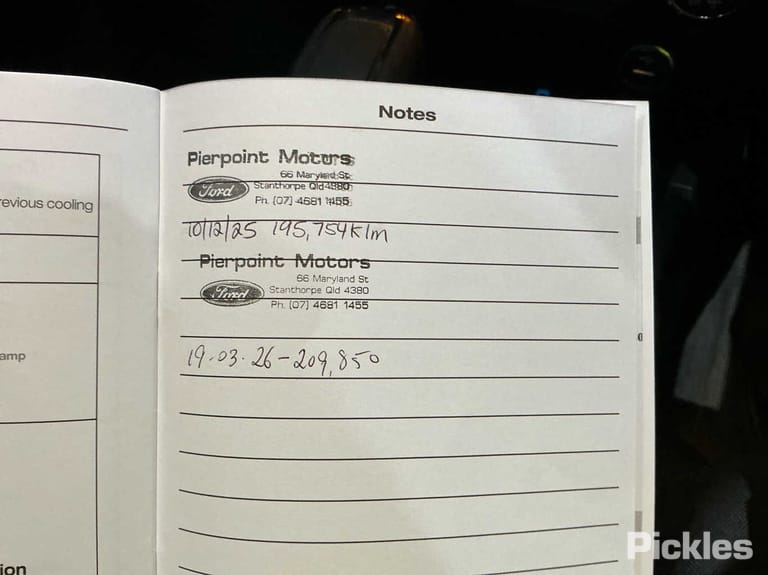 Notes
evious cooling
amp
ion
Pierpoint Motors
66 Maryland St
Ford
Stanthorpe Qld 4380
Ph. (07) 4681 1455
10/12/25 195,754klm
Pierpoint Motors
66 Maryland St
Ford
Stanthorpe Qld 4380
Ph. (07) 4681 1455
19.03.26-209,850
Pickles